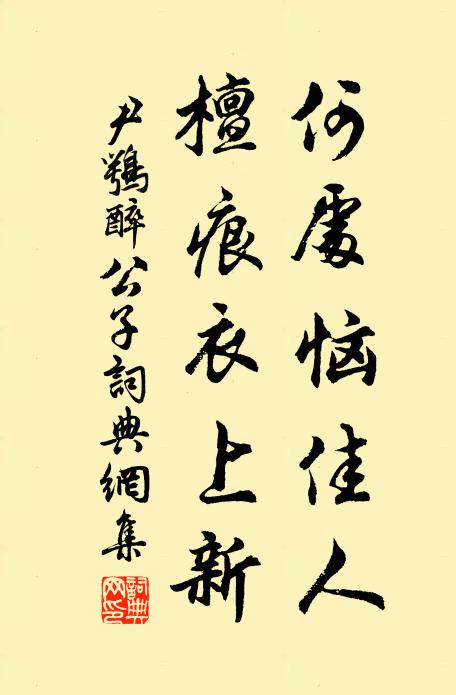 何處恼佳人
檀痕衣上新
尹鶚醉公子詞典網集
詞典網印